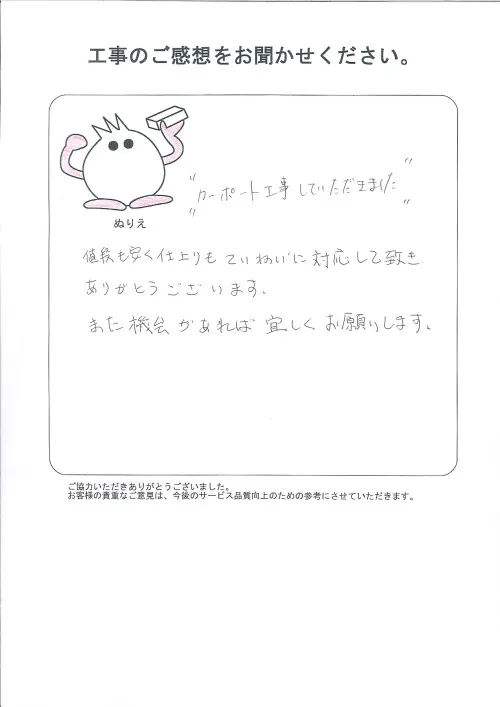 工事のご感想をお聞かせください。
ぬりえ
"カーポート工事していただきました"
値段も安く仕上りもていねいに対応して致き
ありがとうございます。
また機会があれば宜しくお願いします。
ご協力いただきありがとうございました。
お客様の貴重なご意見は、今後のサービス品質向上のための参考にさせていただきます。